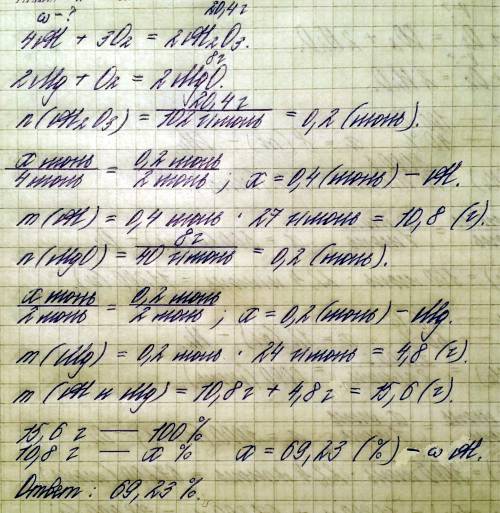 ω - ?
20,4 г
4Al + 3O₂ = 2Al₂O₃.
8 г
2Mg + O₂ = 2MgO.
n(Al₂O₃) = 20,4 г / 102 г/моль = 0,2 (моль).
x моль / 4 моль = 0,2 моль / 2 моль ; x = 0,4 (моль) – Al.
m(Al) = 0,4 моль · 27 г/моль = 10,8 (г).
n(MgO) = 8 г / 40 г/моль = 0,2 (моль).
x моль / 2 моль = 0,2 моль / 2 моль ; x = 0,2 (моль) – Mg.
m(Mg) = 0,2 моль · 24 г/моль = 4,8 (г).
m(Al и Mg) = 10,8 г + 4,8 г = 15,6 (г).
15,6 г — 100%
10,8 г — x % x = 69,23 (%) – ω Al.
Ответ: 69,23 %.